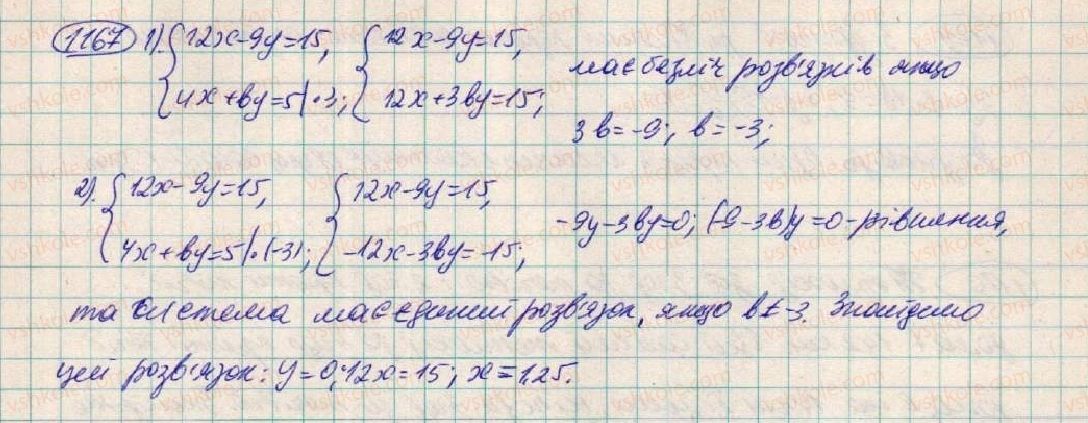 1167 1). { 12x-9y=15, { 12x-9y=15,
4x+by=5|·3; 12x+3by=15;
має безліч розв'язків якщо
3b=-9; b=-3;
2). { 12x-9y=15, { 12x-9y=15,
4x+by=5|·(-3); -12x-3by=-15;
-9y-3by=0; (-9-3b)y=0-рівняння,
та система має єдиний розв'язок, якщо b≠-3. Знайдемо
цей розв'язок: y=0; 12x=15; x=1,25.